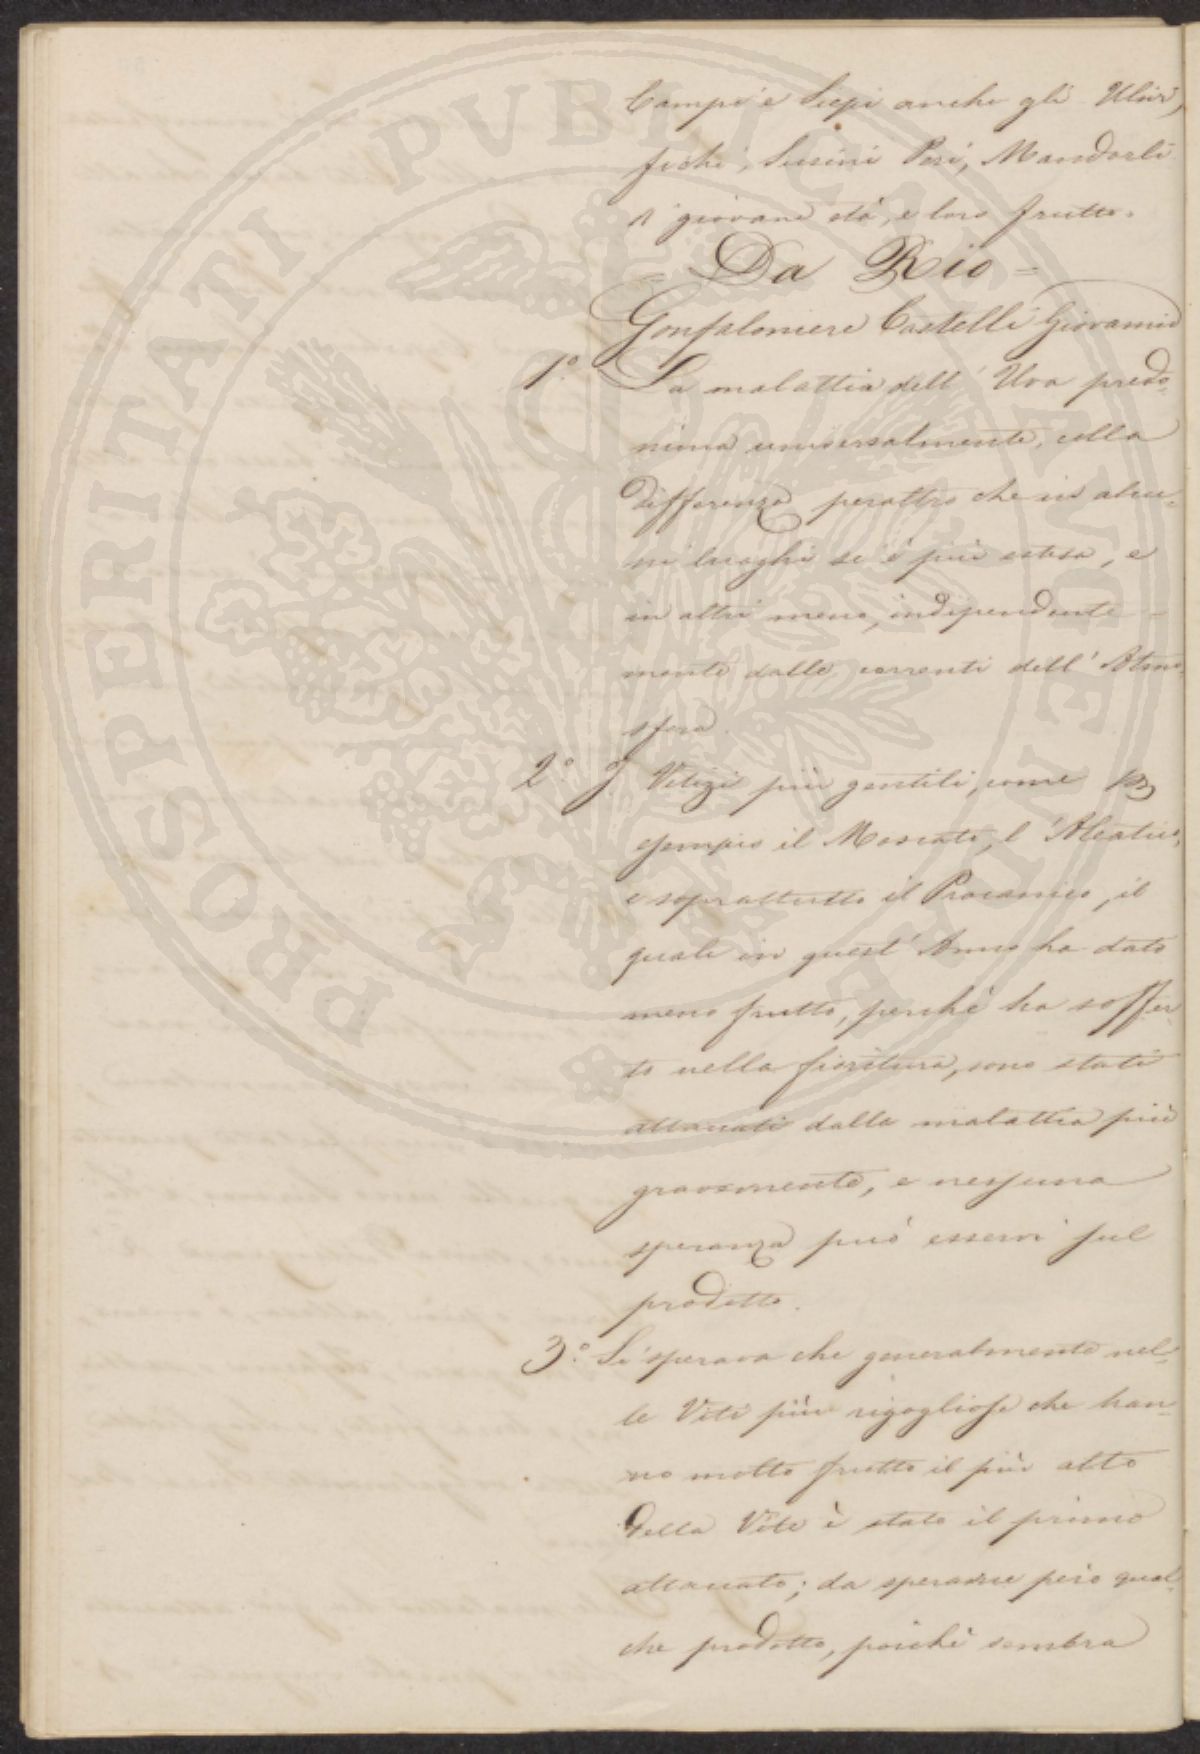 Campi e Siepi anche gli Ulivi,
fichi, Susini Peri, Mandorli
di giovane età, e loro frutto.
= Da Rio =
Gonfaloniere Castelli Giovanni
1.° La malattia dell' Uva predo-
mina universalmente, colla
differenza peraltro che in alcu-
ni luoghi si è più estesa, e
in altri meno, indipendente =
mente dalle correnti dell' Atmo
sfera.
2.° I Vitigi più gentili, come p
esempio il Moscato, l' Aleatico,
e soprattutto il Procanico, il
quale in quest' Anno ha dato
meno frutto, perchè ha soffer
to nella fioritura, sono stati
attaccati dalla malattia più
gravemente, e nessuna
speranza può esservi sul
prodotto.
3.° Si sperava che generalmente nel-
le Viti più rigogliose che han-
no molto frutto il più alto
della Vite è stato il primo
attaccato; da sperarne però qual-
che prodotto, poichè sembra
PROSPERITATI PVBLICAE AVGENDAE